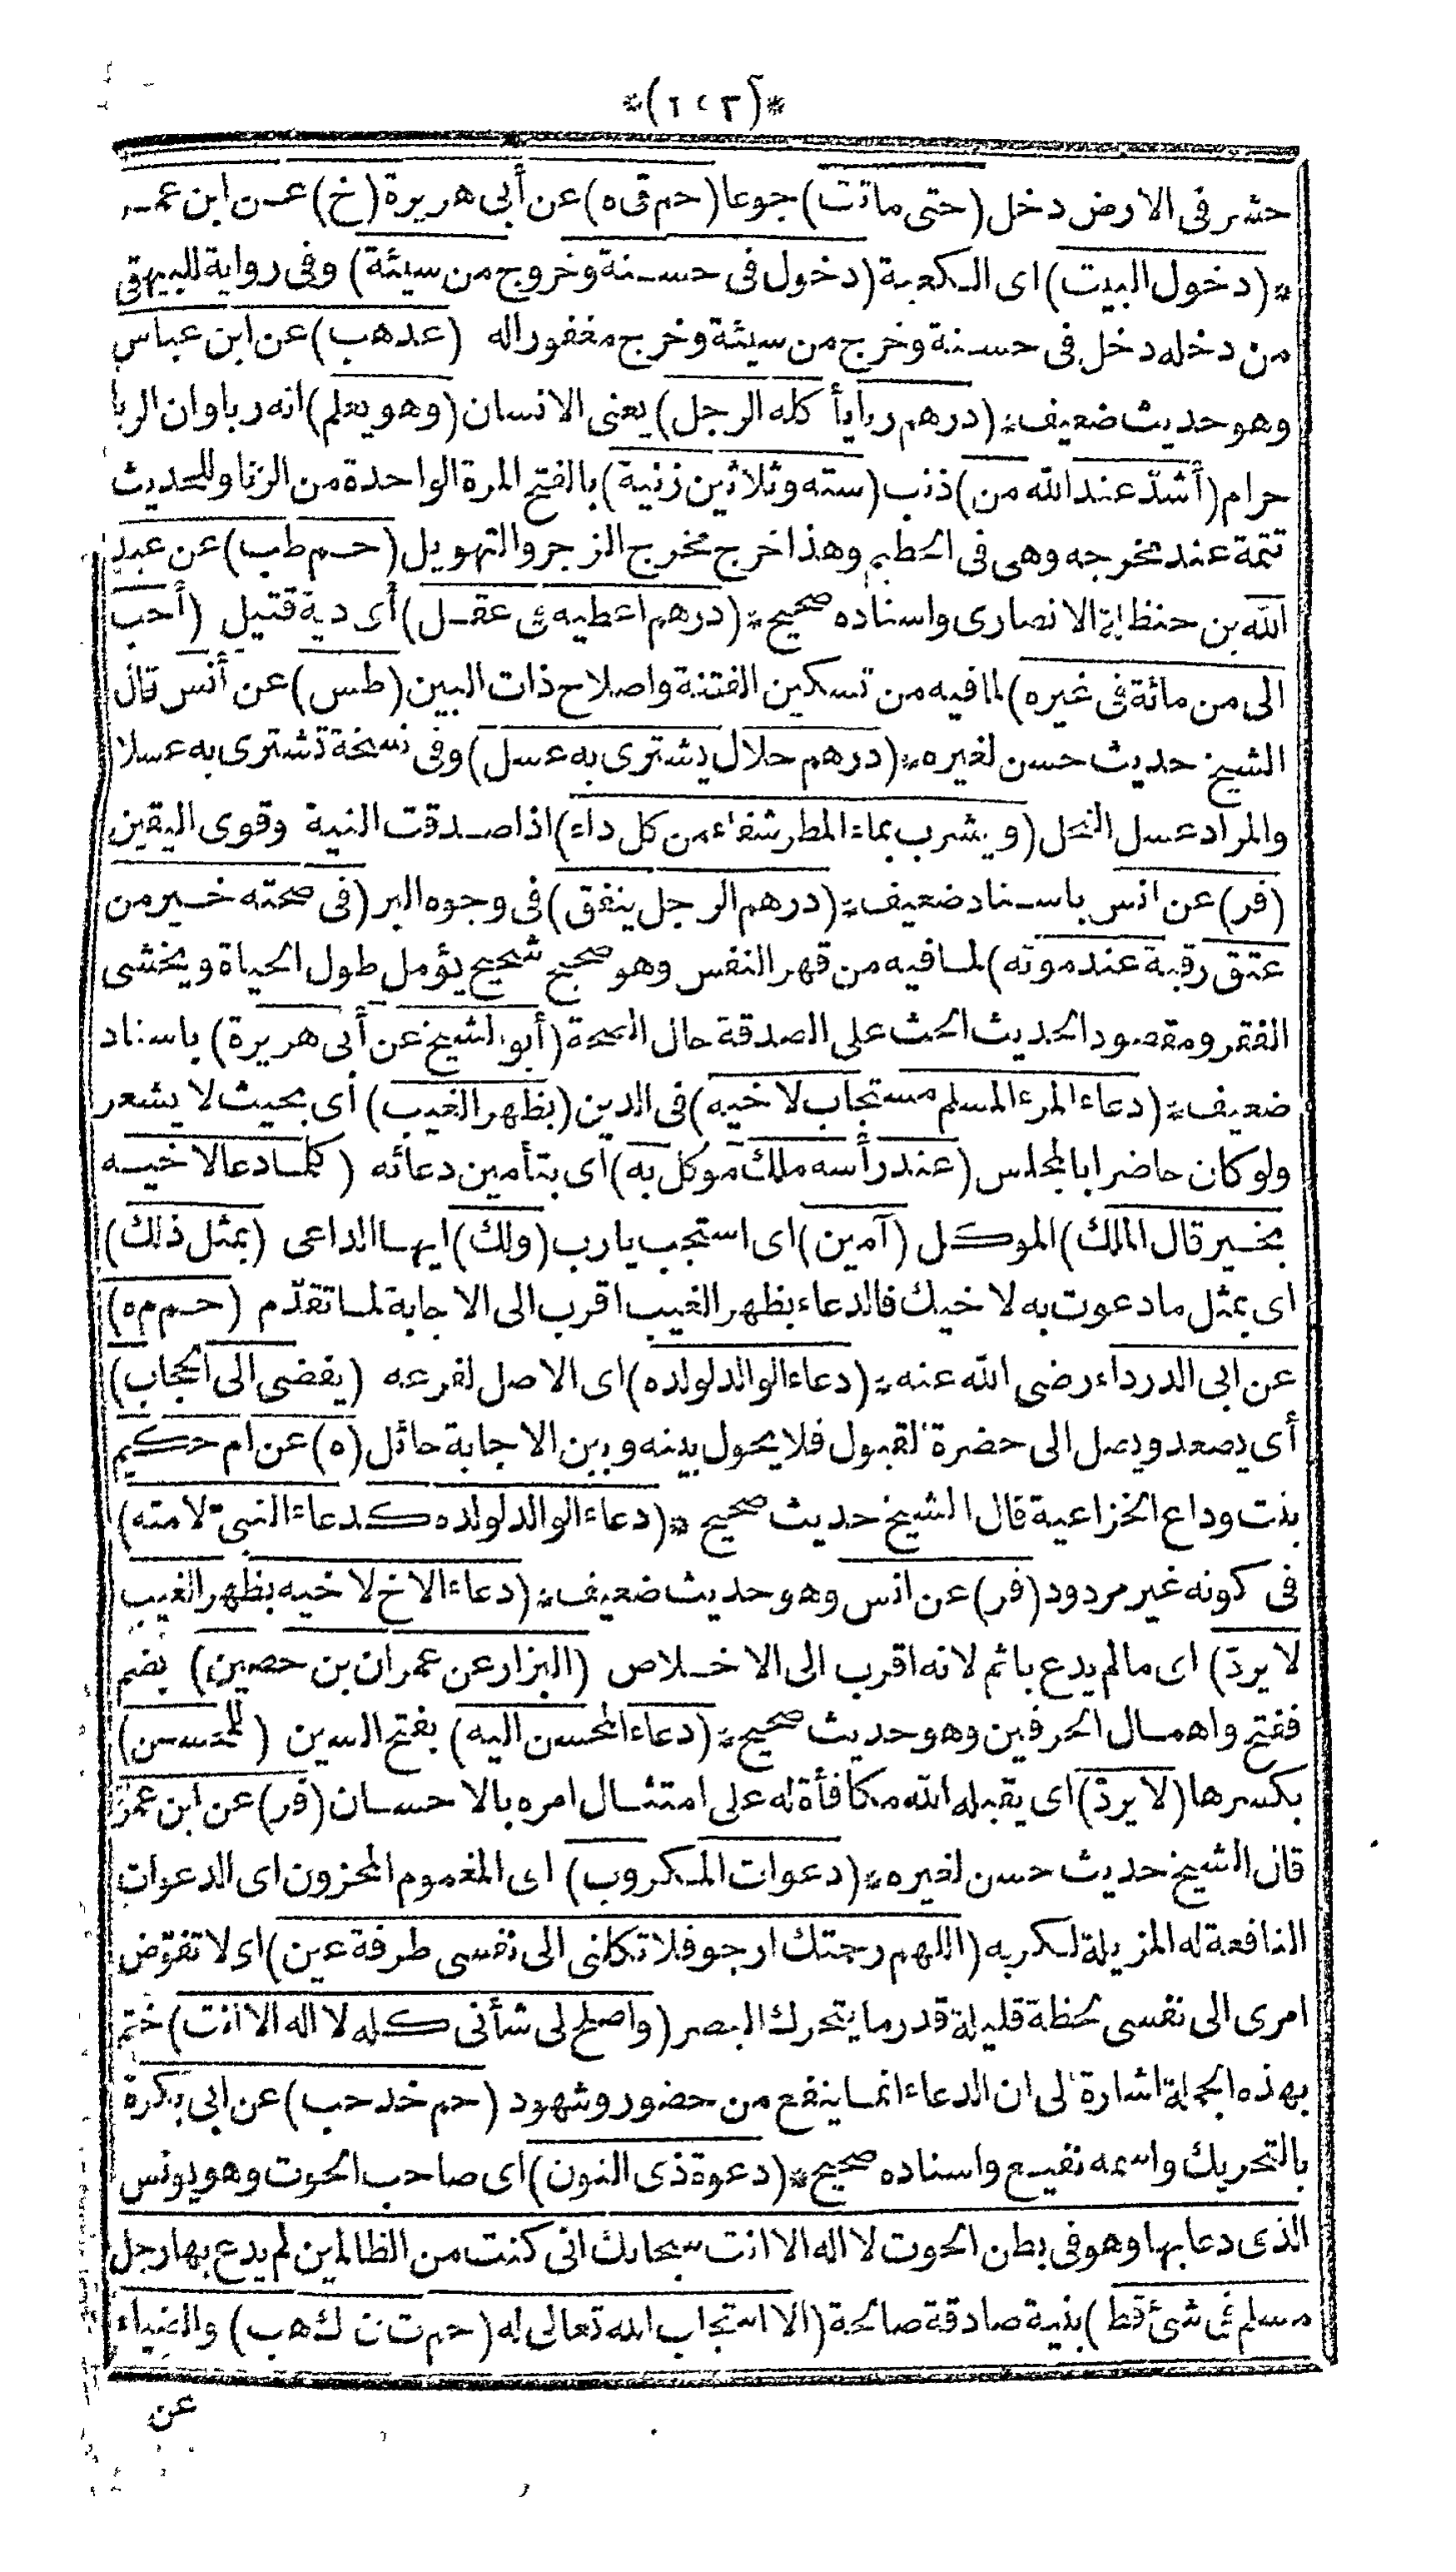 *(٢٥٢)*
حشر فى الارض دخل (حتى ماتت) جوعا (حم ق ه) عن أبى هريرة (خ) عن ابن عمر
*(دخول البيت) اى الكعبة (دخول فى حسنة وخروج من سيئة) وفى رواية للبيهقى
من دخله دخل فى حسنة وخرج من سيئة وخرج مغفورا له (عد هب) عن ابن عباس
وهو حديث ضعيف *(درهم ربا يأكله الرجل) يعنى الانسان (وهو يعلم) انه ربا وان الربا
حرام (أشدّ عند الله من) ذنب (ستة وثلاثين زنية) بالفتح المرة الواحدة من الزنا وللحديث
تتمة عند مخرجه وهى فى الحطيم وهذا خرج مخرج الزجر والتهويل (حم طب) عن عبد
الله بن حنظلة الانصارى واسناده صحيح *(درهم اعطيه فى عقل) أى دية قتيل (أحب
الى من مائة فى غيره) لما فيه من تسكين الفتنة واصلاح ذات البين (طس) عن أنس قال
الشيخ حديث حسن لغيره *(درهم حلال يشترى به عسل) وفى نسخة تشترى به عسلا
والمراد عسل النحل (ويشرب بماء المطر شفاء من كل داء) اذا صدقت النية وقوى اليقين
(فر) عن انس باسناد ضعيف *(درهم الرجل ينفق) فى وجوه البر (فى صحته خير من
عتق رقبة عند موته) لما فيه من قهر النفس وهو صحيح شحيح يؤمل طول الحياة ويخشى
الفقر ومقصود الحديث الحث على الصدقة حال الصحة (أبو الشيخ عن أبى هريرة) باسناد
ضعيف *(دعاء المرء المسلم مستجاب لاخيه) فى الدين (بظهر الغيب) أى بحيث لا يشعر
ولو كان حاضرا بالمجلس (عند رأسه ملك موكل به) أى بتأمين دعائه (كلما دعا لاخيه
بخير قال الملك) الموكل (آمين) اى استجب يارب (ولك) ايها الداعى (بمثل ذلك)
اى بمثل ما دعوت به لاخيك فالدعاء بظهر الغيب اقرب الى الاجابة لما تقدّم (حم م ه)
عن ابى الدرداء رضى الله عنه *(دعاء الوالد لولده) اى الاصل لفرعه (يفضى الى الحجاب)
أى يصعد ويصل الى حضرة القبول فلا يحول بينه وبين الاجابة حائل (ه) عن ام حكيم
بنت وداع الخزاعية قال الشيخ حديث صحيح *(دعاء الوالد لولده كدعاء النبىّ لامته)
فى كونه غير مردود (فر) عن انس وهو حديث ضعيف *(دعاء الاخ لاخيه بظهر الغيب
لا يردّ) اى ما لم يدع باثم لانه اقرب الى الاخلاص (البزار عن عمران بن حصين) بضم
ففتح واهمال الحرفين وهو حديث صحيح *(دعاء المحسن اليه) بفتح السين (للمحسن)
بكسرها (لا يردّ) اى يقبله الله مكافأة له على امتثال امره بالاحسان (فر) عن ابن عمر
قال الشيخ حديث حسن لغيره *(دعوات المكروب) اى المغموم المحزون اى الدعوات
النافعة له المزيلة لكربه (اللهم رحمتك ارجو فلا تكلنى الى نفسى طرفة عين) اى لا تفوّض
امرى الى نفسى لحظة قليلة قدر ما يتحرك البصر (واصلح لى شأنى كله لا اله الا انت) ختم
بهذه الجملة اشارة الى ان الدعاء انما ينفع من حضور وشهود (حم خد حب) عن ابى بكرة
بالتحريك واسمه نفيع واسناده صحيح *(دعوة ذى النون) اى صاحب الحوت وهو يونس
الذى دعا بها وهو فى بطن الحوت لا اله الا انت سبحانك انى كنت من الظالمين لم يدع بها رجل
مسلم فى شئ قط) بنية صادقة صالحة (الا استجاب الله تعالى له (حم ت ن ك هب) والضياء
عن